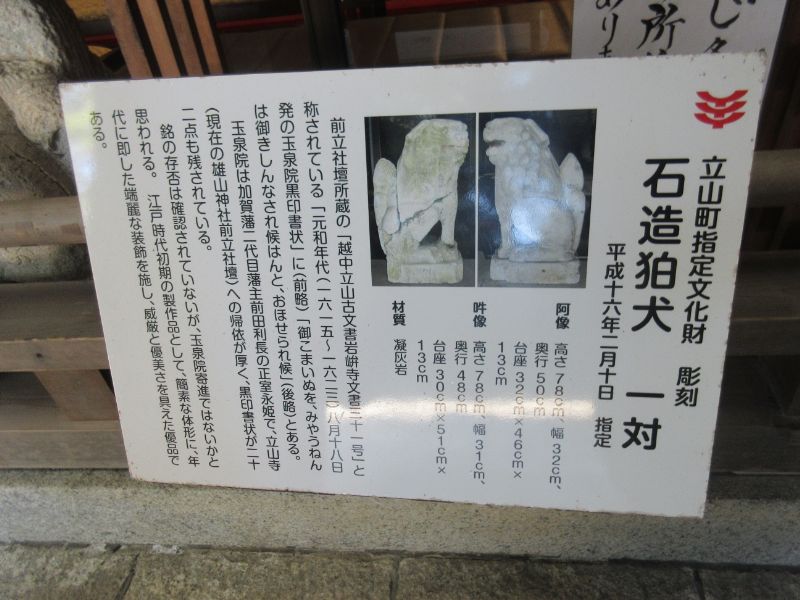 立山町指定文化財 彫刻
石造狛犬 一対
平成十六年二月十日 指定
阿像 高さ78cm、幅32cm、
奥行50cm
台座32cm×46cm×
13cm
吽像 高さ78cm、幅31cm、
奥行48cm
台座30cm×51cm×
13cm
材質 凝灰岩
前立社壇所蔵の「越中立山古文書岩峅寺文書三十一号」と
称されている「元和年代(一六一五〜一六二三)八月十八日
発の玉泉院黒印書状」に(前略)「御こまいぬを、みやうねん
は御きしんなされ候はんと、おほせられ候」(後略)とある。
玉泉院は加賀藩二代目藩主前田利長の正室永姫で、立山寺
(現在の雄山神社前立社壇)への帰依が厚く、黒印書状が二十
二点も残されている。
銘の存否は確認されていないが、玉泉院寄進ではないかと
思われる。 江戸時代初期の製作品として、簡素な体形に、年
代に即した端麗な装飾を施し、威厳と優美さを具えた優品で
ある。